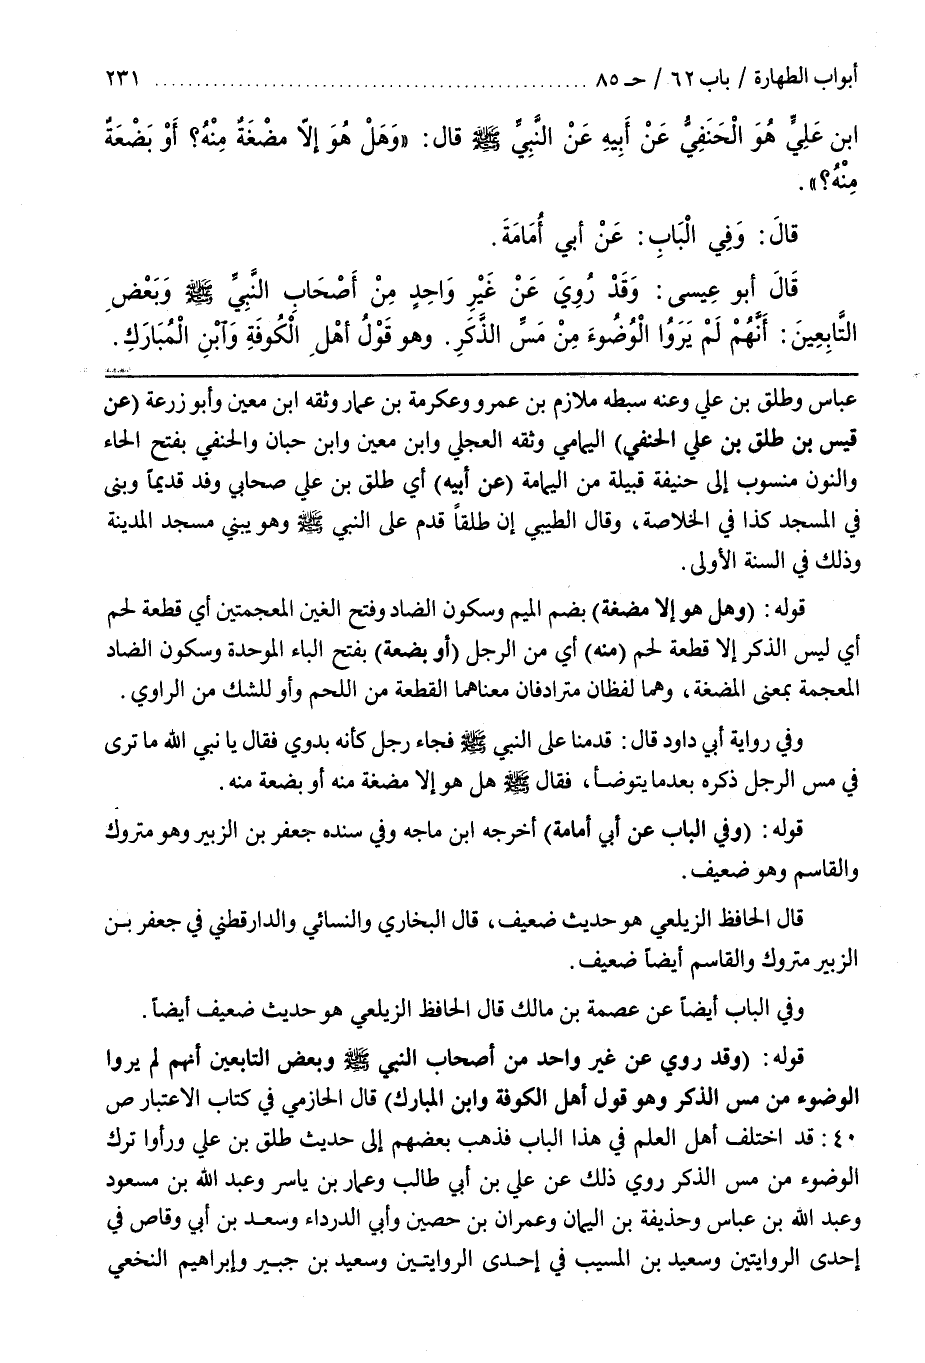 أبواب الطهارة / باب ٦٢ / حـ ٨٥ ........................................................ ٢٣١
ابن عَلِيٍّ هُوَ الْحَنَفِيُّ عَنْ أَبِيهِ عَنْ النَّبِيِّ ﷺ قال: «وَهَلْ هُوَ إلّا مضْغَةٌ مِنْهُ؟ أَوْ بَضْعَةٌ
مِنْهُ؟».
قالَ: وَفِي الْبَابِ: عَنْ أبي أُمَامَةَ.
قَالَ أبو عِيسى: وَقَدْ رُوِيَ عَنْ غَيْرِ وَاحِدٍ مِنْ أَصْحَابِ النَّبِيِّ ﷺ وَبَعْضِ
التَّابِعِينَ: أَنَّهُمْ لَمْ يَرَوُا الْوُضُوءَ مِنْ مَسِّ الذَّكَرِ. وهو قَوْلُ أهْلِ الْكُوفَةِ وَآبْنِ الْمُبَارَكِ.
عباس وطلق بن علي وعنه سبطه ملازم بن عمرو وعكرمة بن عمار وثقه ابن معين وأبو زرعة (عن
قيس بن طلق بن علي الحنفي) اليمامي وثقه العجلي وابن معين وابن حبان والحنفي بفتح الحاء
والنون منسوب إلى حنيفة قبيلة من اليمامة (عن أبيه) أي طلق بن علي صحابي وفد قديماً وبنى
في المسجد كذا في الخلاصة، وقال الطيبي إن طلقاً قدم على النبي ﷺ وهو يبني مسجد المدينة
وذلك في السنة الأولى.
قوله: (وهل هو إلا مضغة) بضم الميم وسكون الضاد وفتح الغين المعجمتين أي قطعة لحم
أي ليس الذكر إلا قطعة لحم (منه) أي من الرجل (أو بضعة) بفتح الباء الموحدة وسكون الضاد
المعجمة بمعنى المضغة، وهما لفظان مترادفان معناهما القطعة من اللحم وأو للشك من الراوي.
وفي رواية أبي داود قال: قدمنا على النبي ﷺ فجاء رجل كأنه بدوي فقال يا نبي الله ما ترى
في مس الرجل ذكره بعدما يتوضأ، فقال ﷺ هل هو إلا مضغة منه أو بضعة منه.
قوله: (وفي الباب عن أبي أمامة) أخرجه ابن ماجه وفي سنده جعفر بن الزبير وهو متروك
والقاسم وهو ضعيف.
قال الحافظ الزيلعي هو حديث ضعيف، قال البخاري والنسائي والدارقطني في جعفر بن
الزبير متروك والقاسم أيضاً ضعيف.
وفي الباب أيضاً عن عصمة بن مالك قال الحافظ الزيلعي هو حديث ضعيف أيضاً.
قوله: (وقد روي عن غير واحد من أصحاب النبي ﷺ وبعض التابعين أنهم لم يروا
الوضوء من مس الذكر وهو قول أهل الكوفة وابن المبارك) قال الحازمي في كتاب الاعتبار ص
٤٠: قد اختلف أهل العلم في هذا الباب فذهب بعضهم إلى حديث طلق بن علي ورأوا ترك
الوضوء من مس الذكر روي ذلك عن علي بن أبي طالب وعمار بن ياسر وعبد الله بن مسعود
وعبد الله بن عباس وحذيفة بن اليمان وعمران بن حصين وأبي الدرداء وسعد بن أبي وقاص في
إحدى الروايتين وسعيد بن المسيب في إحدى الروايتين وسعيد بن جبير وإبراهيم النخعي